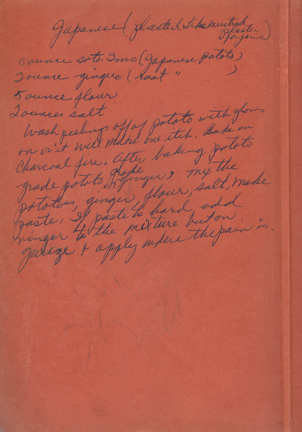 Japanese plaster (Like Mustard
Plaster
for pain)
5 ounce soto Imo (Japanese Potato)
2 ounce ginger (Root " )
5 ounce flour
2 ounces salt
Wash peelings off of potato with gloves
on or it will make one itch. Bake on
Charcoal fire. After baking potato
grade potato, grade
potatoes, ginger, flour, salt, make
in ginger, mix the
paste. If paste to hard add
vinegar to the mixture but on
gauze & apply where the pain is.